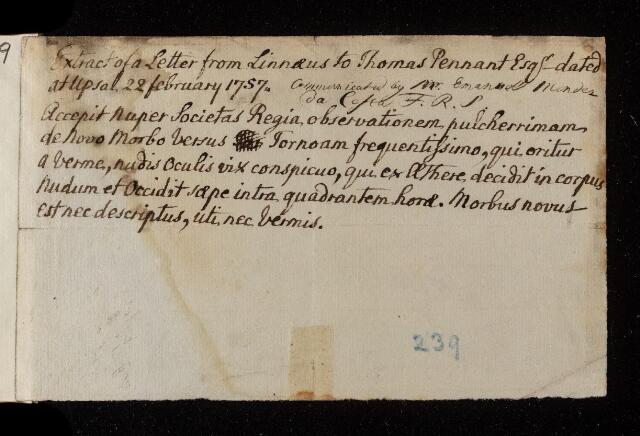 9
Extract of a Letter from Linnæus to Thomas Pennant Esqr. dated
at Upsal 22 february 1757. Communicated by Mr. Emanuel Mendez
da Costa F. R. S
Accepit nuper Societas Regia, observationem pulcherrimam
de novo Morbo versus Tornoam frequentissimo, qui oritur
a verme, nudis oculis vix conspicuo, qui ex Æthere, decidit in corpus
Nudum et Occidit sæpe intra quadrantem horæ. Morbus novus
est nec descriptus, uti nec vermis.
239